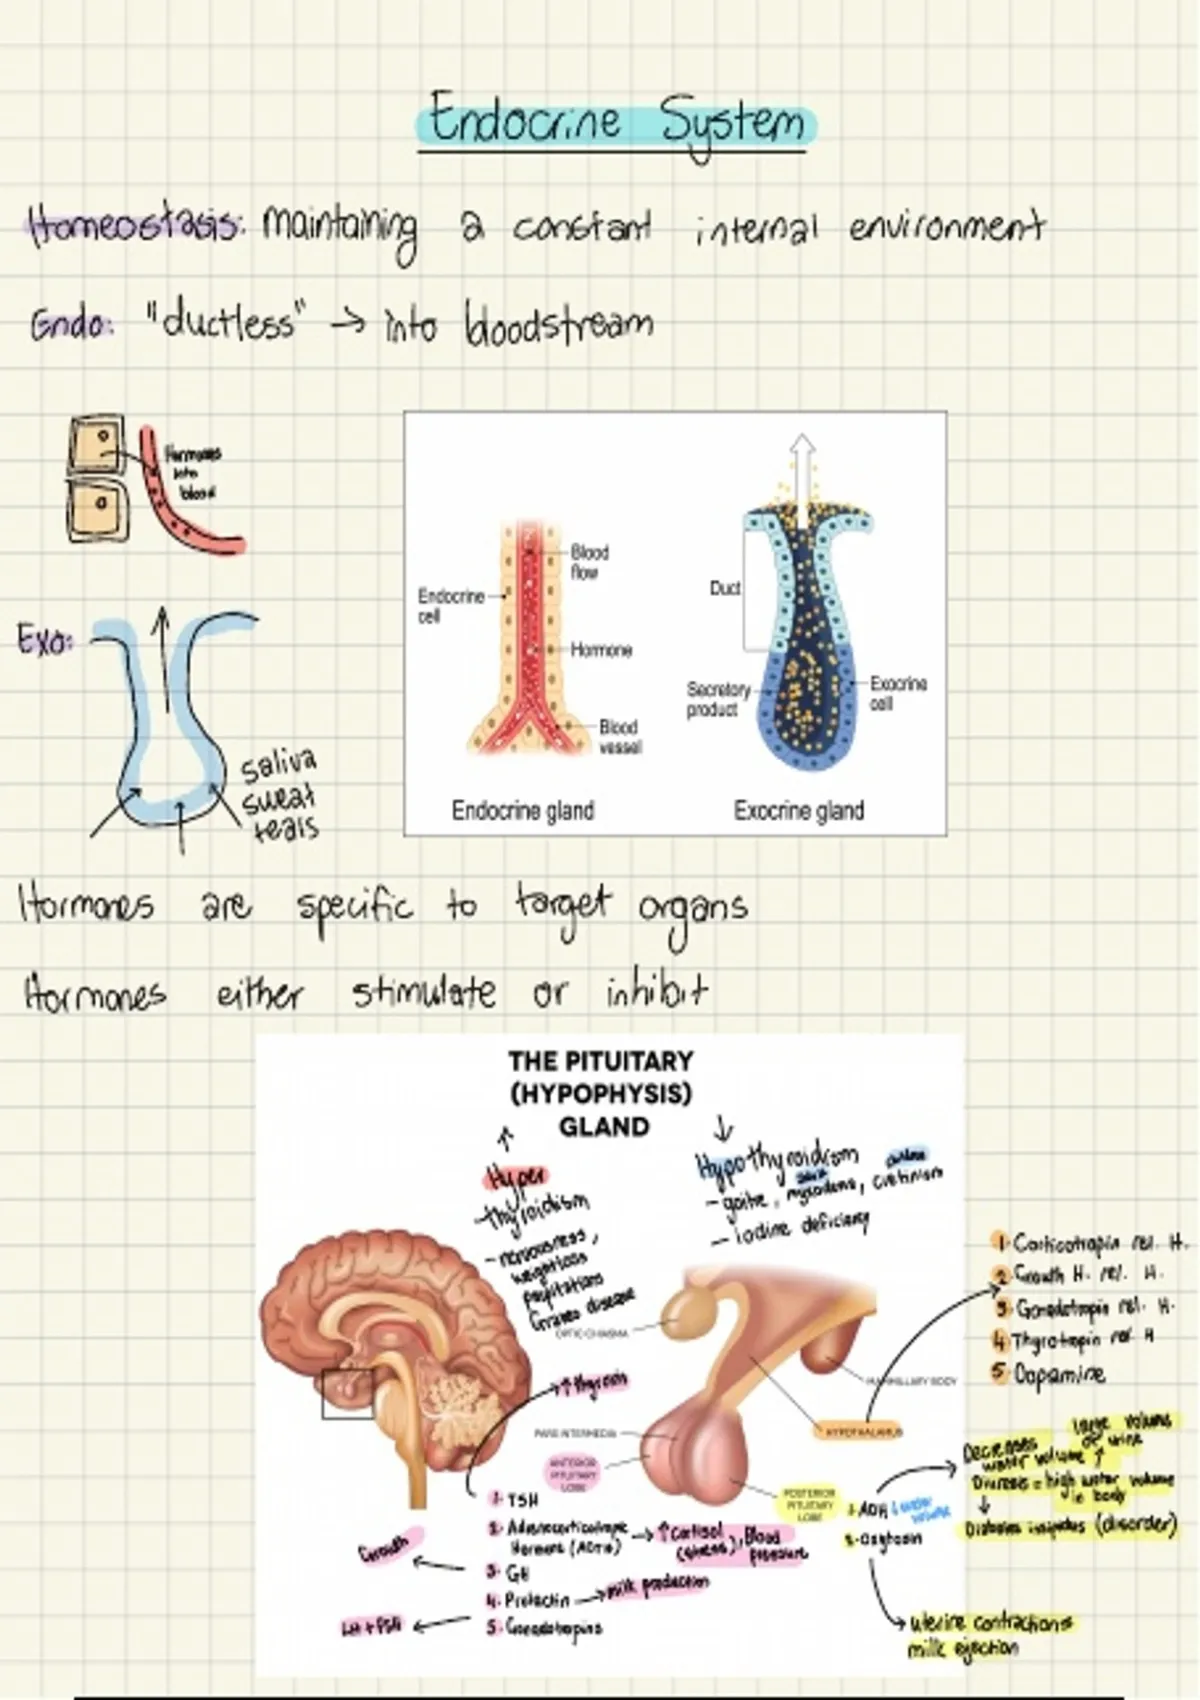 Endocrine System
Homeostasis: maintaining a constant internal environment
Endo: "ductless" → into bloodstream
Hormones
into
blood
Exo:
saliva
sweat
tears
Endocrine
cell
Blood
flow
Hormone
Blood
vessel
Endocrine gland
Duct
Secretory
product
Exocrine
cell
Exocrine gland
Hormones are specific to target organs
Hormones either stimulate or inhibit
THE PITUITARY
(HYPOPHYSIS)
GLAND
↑
Hyper
-thyroidism
- nervousness,
weightloss
palpitations
Graves disease
↓
Hypothyroidism
- goitre, myxedema, cretinism
- iodine deficiency
OPTIC CHIASMA
MAMMILLARY BODY
HYPOTHALAMUS
PARS INTERMEDIA
ANTERIOR
PITUITARY
LOBE
POSTERIOR
PITUITARY
LOBE
1. Corticotropin rel. H.
2. Growth H. rel. H.
3. Gonadotropin rel. H.
4. Thyrotropin rel H
5. Dopamine
1. TSH
2. Adrenocorticotropic
Hormone (ACTH) → ↑Cortisol
(stress), Blood
pressure
3. GH
Growth
4. Prolactin → milk production
5. Gonadotropins
LH + FSH
1. ADH ↓ water
volume
2. Oxytocin
Decreases
water volume ↑
large volume
of urine
Diuresis = high water volume
in body
↓
Diabetes insipidus (disorder)
uterine contractions
milk ejection